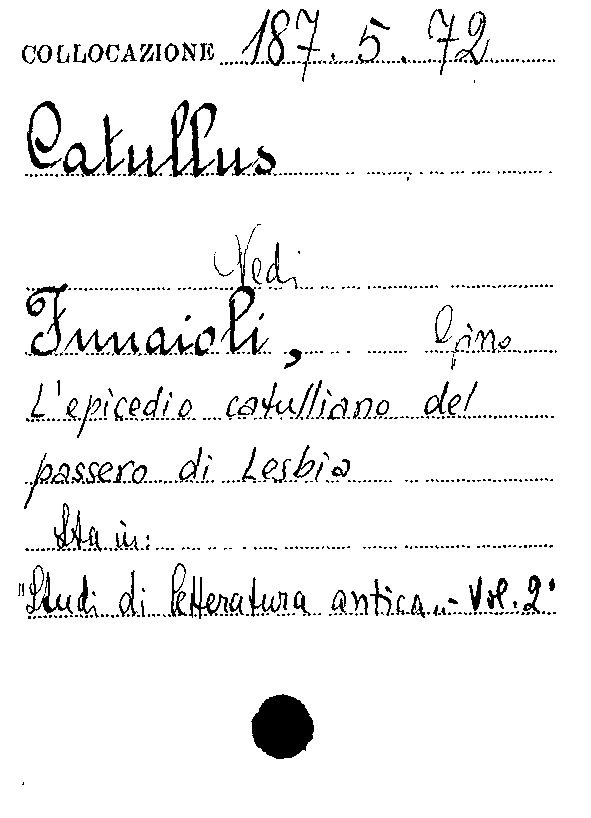 COLLOCAZIONE 187.5.72
Catullus
Vedi
Funaioli, Gino
L'epicedio catulliano del
passero di Lesbia
Sta in:
"Studi di letteratura antica„- Vol. 2°